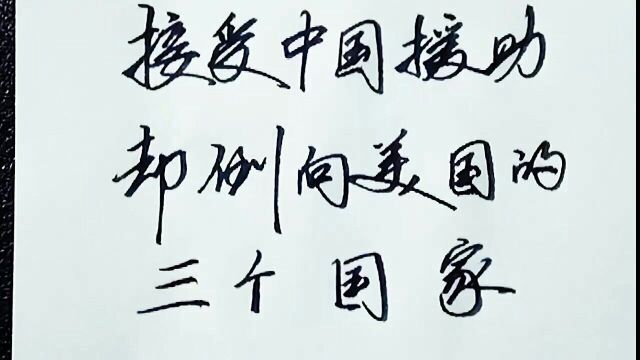 接受中国援助
却倒向美国的
三个国家